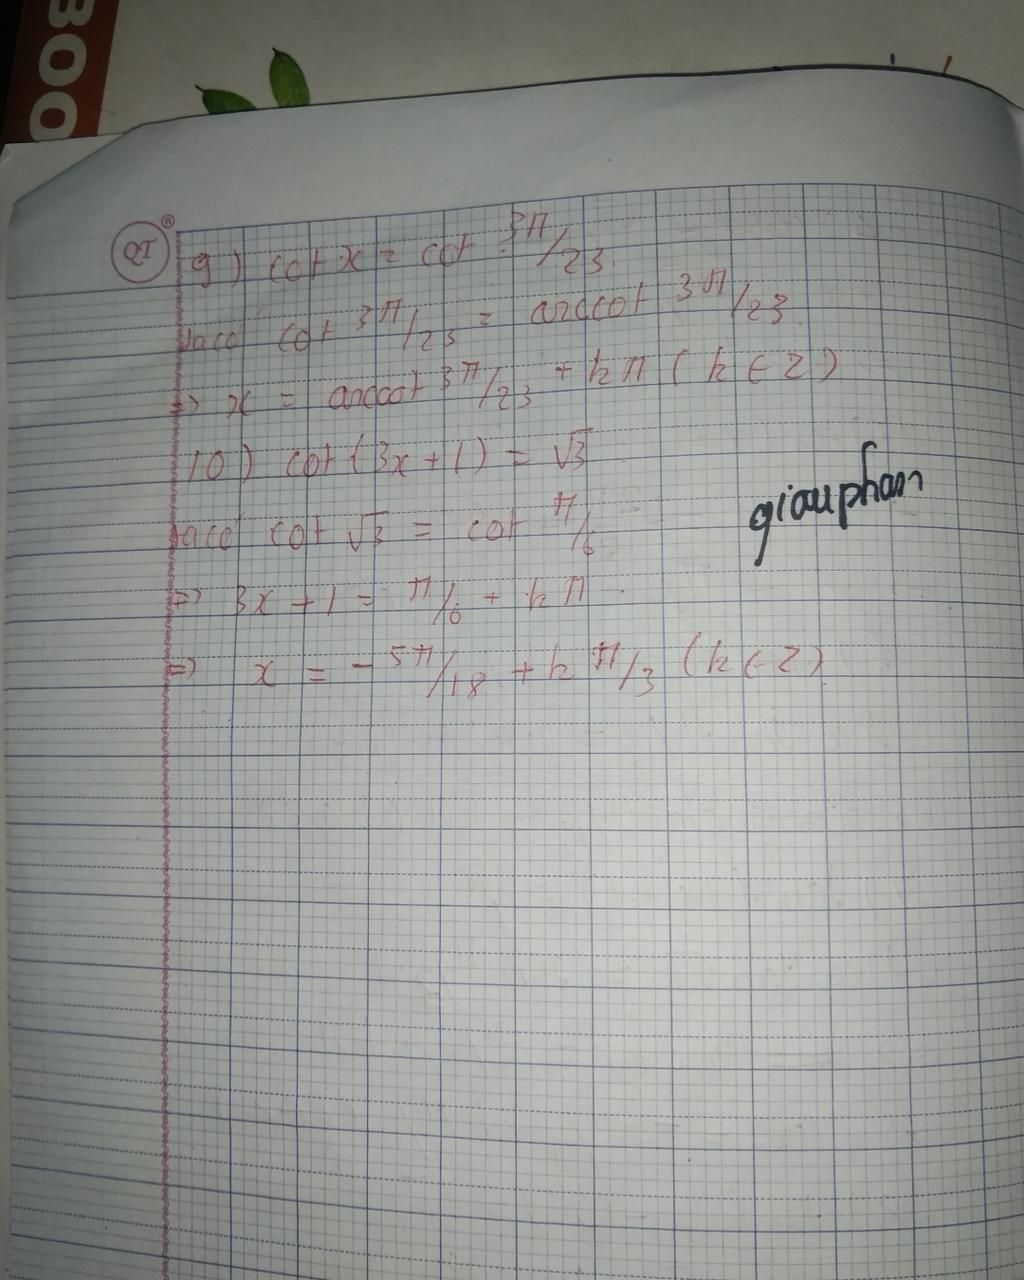 800
QI ®
9) cot x = cot 3π/23
Taco cot 3π/23 = arccot 3π/23
=> x = arccot 3π/23 + kπ (k ∈ Z)
10) cot (3x + 1) = √3
Taco cot √3 = cot π/6
=> 3x + 1 = π/6 + kπ
=> x = - 5π/18 + k π/3 (k ∈ Z)
giauphan